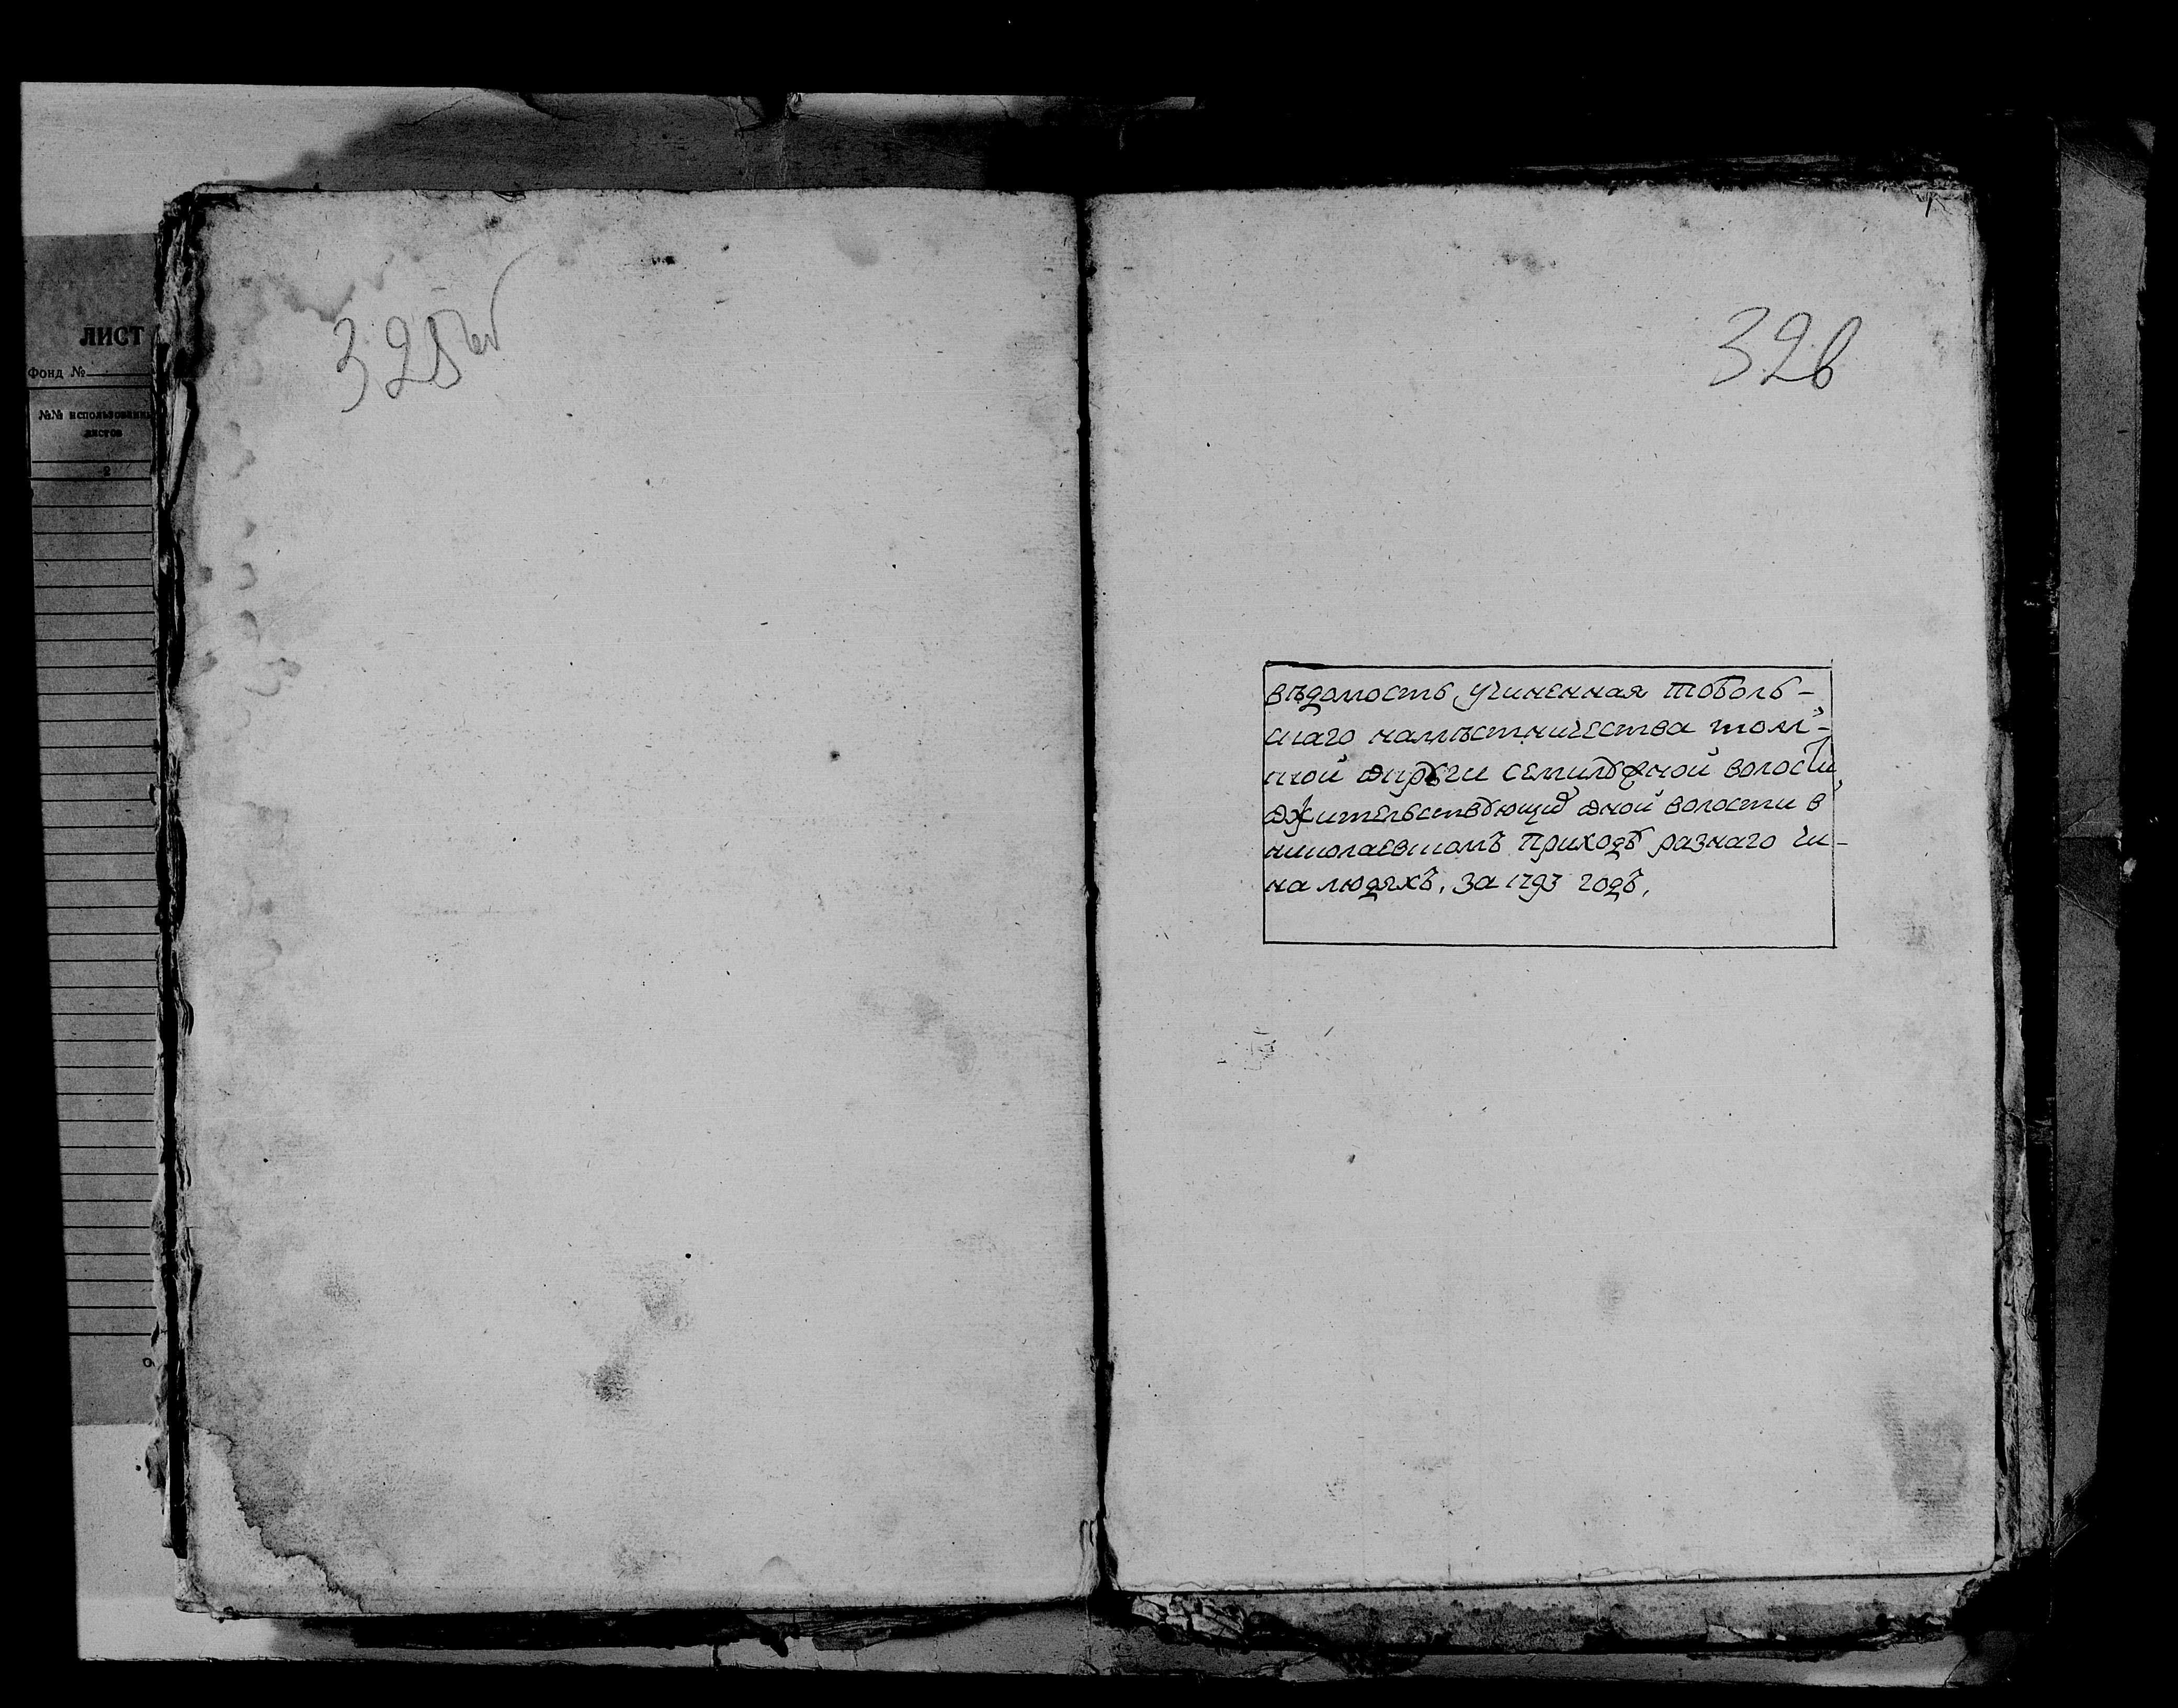 ЛИСТ
Фонд №
№№ использованны
листов
2
325об
326
вѣдомость, учиненная тоболь-
скаго намѣстничества томс-
кой округи семилужной волости,
ожительствующиχ оной волости в
николаевскомъ приходѣ разнаго чи-
на людяхъ, за 1793 годъ,